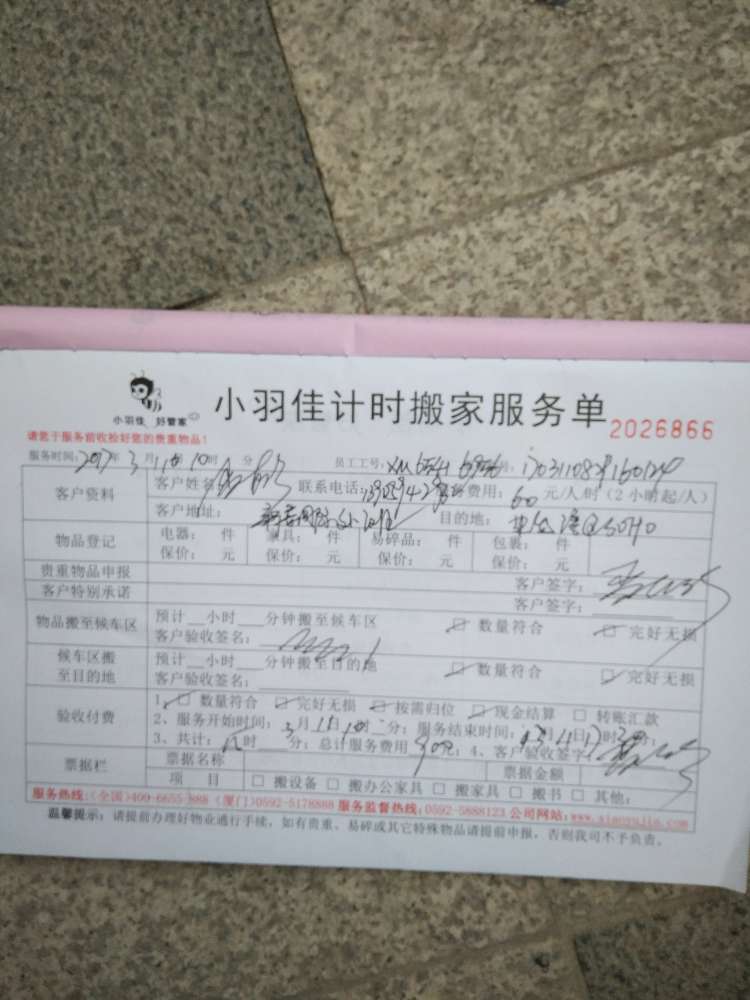 小羽佳 好管家
小羽佳计时搬家服务单 2026866
请您于服务前收捡好您的贵重物品！
服务时间：2017年3月11日10时 分 员工工号：XM6541
客户资料 客户姓名 联系电话： 费用：60元/人/时（2小时起/人）
客户地址： 目的地： SOHO
物品登记 电器： 件 家具： 件 易碎品： 件 包装： 件
保价： 元 保价： 元 保价： 元 保价： 元
贵重物品申报 客户签字：
客户特别承诺 客户签字：
物品搬至候车区 预计__小时__分钟搬至候车区 数量符合 完好无损
客户验收签名：
候车区搬至目的地 预计__小时__分钟搬至目的地 数量符合 完好无损
客户验收签名：
验收付费 1、 数量符合 完好无损 按需归位 现金结算 转账汇款
2、服务开始时间：3月11日 分；服务结束时间：3月11日 分；
3、共计： 时 分；总计服务费用 元；4、客户验收签字：
票据栏 票据名称 票据金额
项目 □ 搬设备 □ 搬办公家具 □ 搬家具 □ 搬书 □ 其他：
服务热线：（全国）400-6655-888（厦门）0592-5178888 服务监督热线：0592-5888123 公司网站：www.xiaoyujia.com
温馨提示：请提前办理好物业通行手续，如有贵重、易碎或其它特殊物品请提前申报，否则我司不予负责。